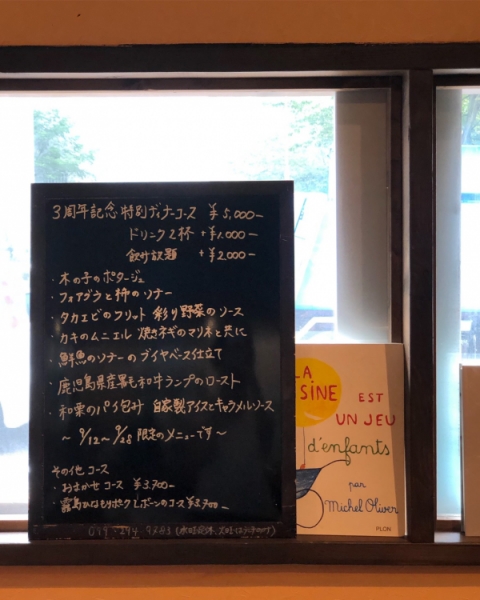 3周年記念 特別ディナーコース ¥5,000-
ドリンク2杯 +¥1.000-
飲み放題 +¥2,000-
・木の子のポタージュ
・フォアグラと柿のソテー
・タカエビのフリット 彩り野菜のソース
・カキのムニエル 焼きネギのマリネと共に
・鮮魚のソテーのブイヤベース仕立て
・鹿児島県産黒毛和牛ランプのロースト
・和栗のパイ包み 自家製アイスとキャラメルソース
〜 9/12〜9/28 限定のメニューです〜
その他 コース
・おまかせコース ¥3.700-
・霧島 Lボーンのコース ¥3,700-
LA
SINE
EST
UN JEU
d'enfants
par
Michel Oliver
PLON